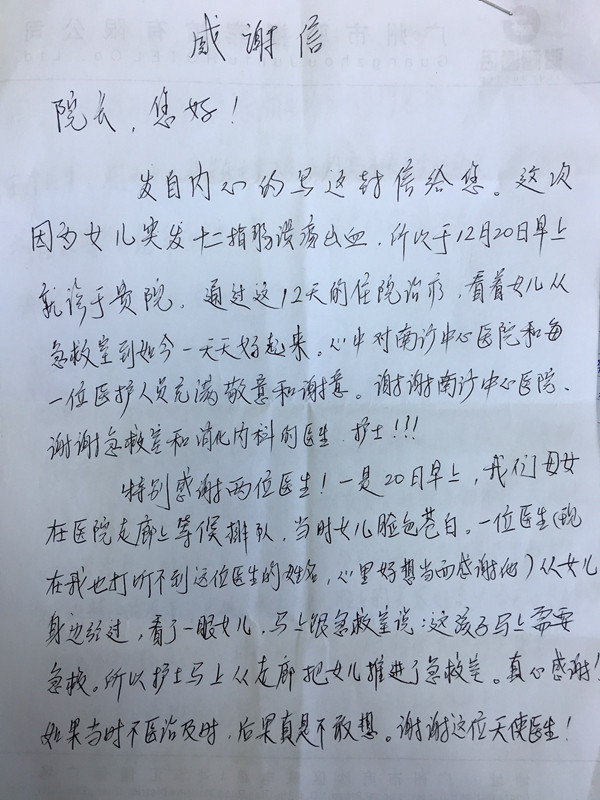 感谢信
院长，您好！
发自内心的写这封信给您。这次
因为女儿突发十二指肠溃疡出血，所以于12月20日早上
就诊于贵院。通过这12天的住院治疗，看着女儿从
急救室到如今一天天好起来。心中对南沙中心医院和每
一位医护人员充满敬意和谢意。谢谢南沙中心医院、
谢谢急救室和消化内科的医生、护士!!!
特别感谢两位医生！一是20日早上，我们母女
在医院走廊上等候排队，当时女儿脸色苍白。一位医生(现
在我也打听不到这位医生的姓名，心里好想当面感谢他)从女儿
身边经过，看了一眼女儿，马上跟急救室说：这孩子马上需要
急救。所以护士马上从走廊把女儿推进了急救室。真心感谢！
如果当时不医治及时，后果真是不敢想。谢谢这位天使医生！